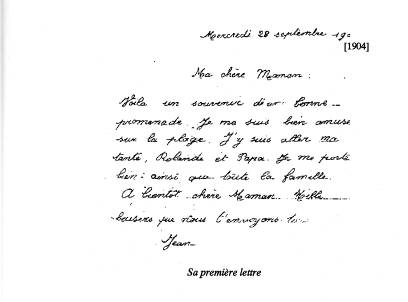 Mercredi 28 septembre 190
[1904]
Ma chère Maman :
Voila un souvenir d'une bonne
promenade. Je me suis bien amusé
sur la plage. J'y suis aller ma
tante, Rolande et Papa. Je me porte
bien : ainsi que toute la famille.
A bientôt chère Maman. Mille
baisers que nous t'envoyons
Jean
Sa première lettre